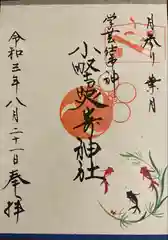 月参り 葉月
学芸の神
小野照崎神社
令和三年八月二十一日 奉拝